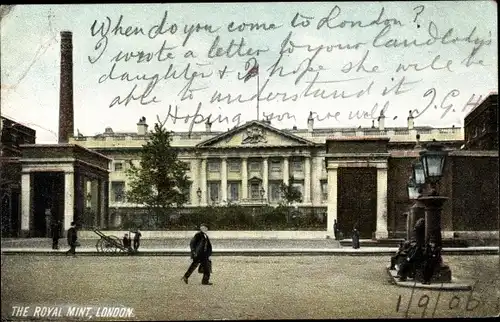 When do you come to London?
I wrote a letter to your landlady's
daughter & I hope she will be
able to understand it
Hoping you are well. J.G.H
THE ROYAL MINT, LONDON.
1/9/06